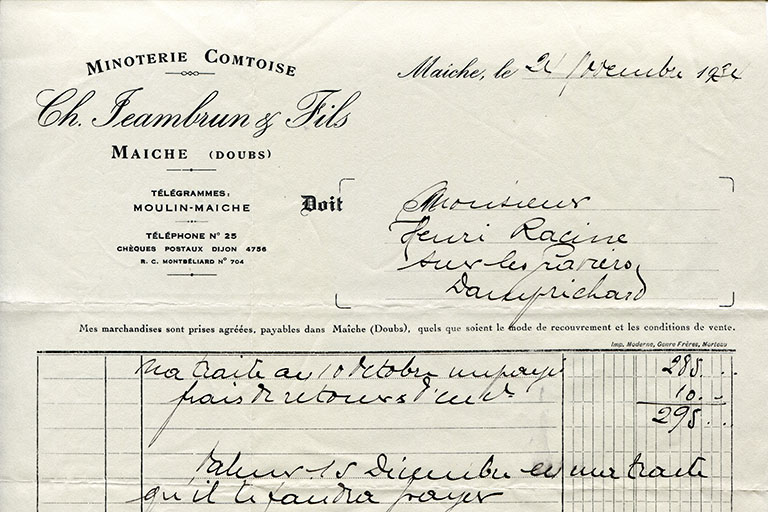 MINOTERIE COMTOISE
Ch. Jeambrun & Fils
MAICHE (DOUBS)
TÉLÉGRAMMES:
MOULIN-MAICHE
TÉLÉPHONE N° 25
CHÈQUES POSTAUX DIJON 4756
R. C. MONTBÉLIARD N° 704
Maîche, le 24 Novembre 1934
Doit
Monsieur
Henri Racine
sur les
Damprichard
Mes marchandises sont prises agréées, payables dans Maîche (Doubs), quels que soient le mode de recouvrement et les conditions de vente.
Imp. Moderne, Genre Frères, Morteau
Ma traite au 10 Octobre impayé 285
frais de retour & d'
10
295
Valeur 15 Décembre en ma traite
qu'il te faudra payer